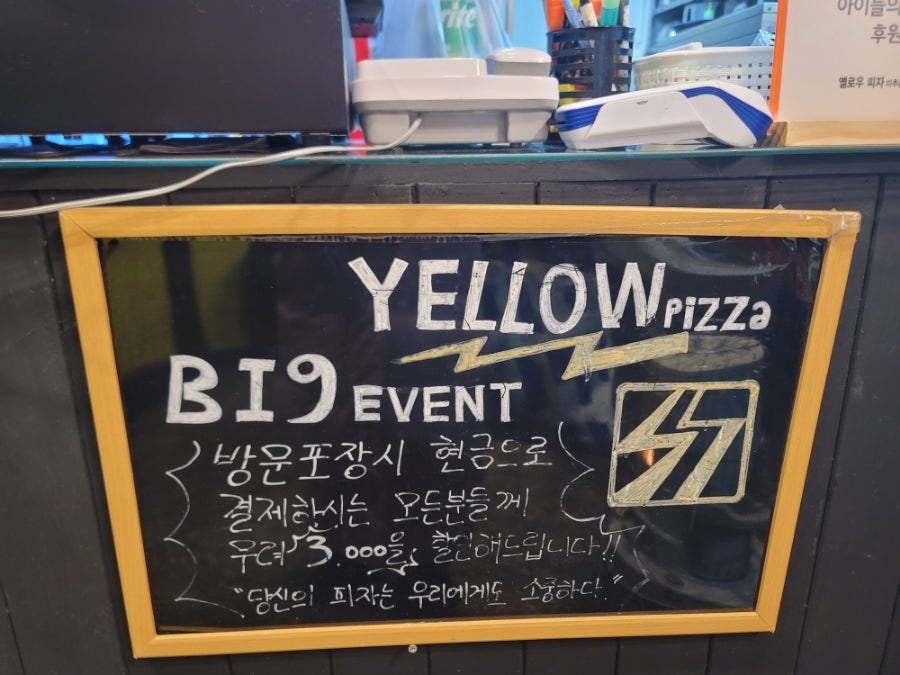 rite
아이들의
후원
옐로우 피자
YELLOW PIZZa
BIg EVENT
방문포장시 현금으로
결제하시는 모든분들께
무려 3.000을 할인해드립니다!!
"당신의 피자는 우리에게도 소중하다."